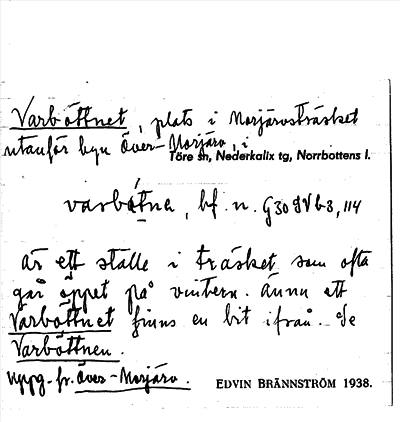 Varböttnet, plats i Morjärvsträsket
utanför byn Över-Morjärv, i
Töre sn, Nederkalix tg, Norrbottens l.
varbåtna, bf. n.
är ett ställe i träsket som ofta
går öppet på vintern. Ännu ett
Varböttnet finns en bit ifrån. Se
Varböttnen.
Uppg. fr. Över-Morjärv. EDVIN BRÄNNSTRÖM 1938.